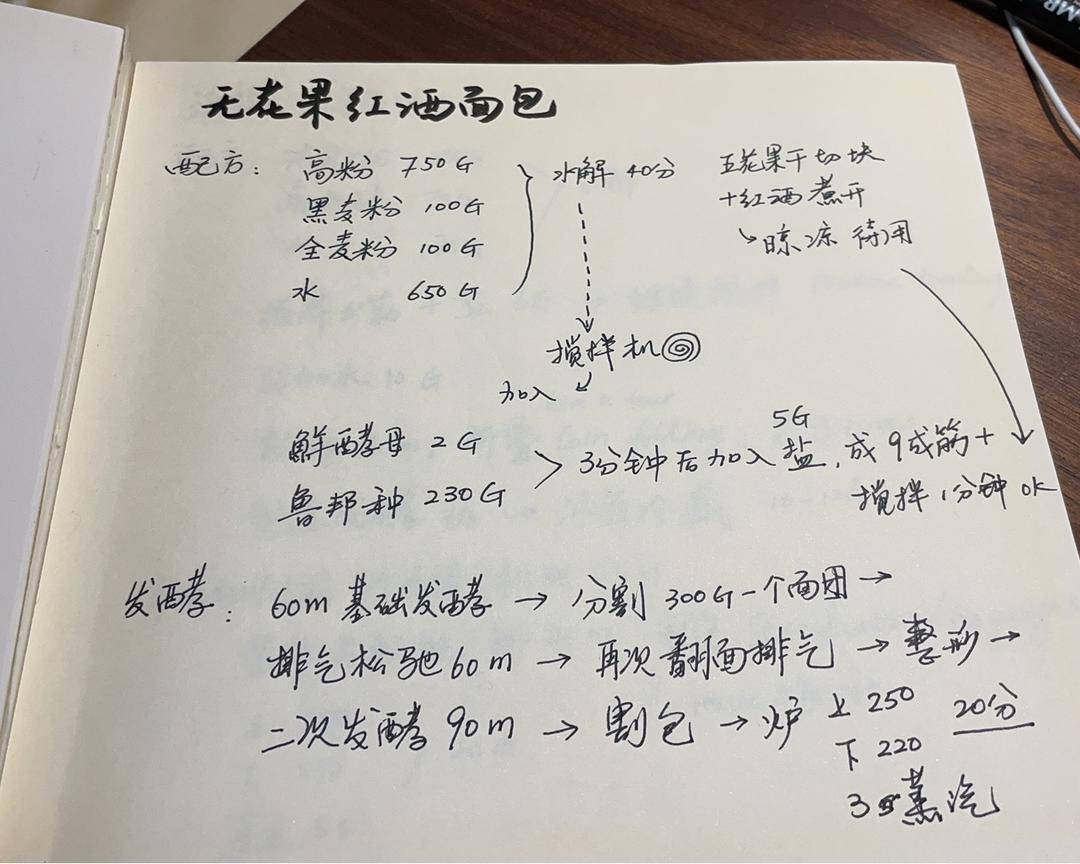 无花果红酒面包
配方： 高粉 750G
黑麦粉 100G
全麦粉 100G
水 650G
水解 40分
搅拌机
加入
无花果干切块
+红酒煮开
↘晾凉 待用
鲜酵母 2G
鲁邦种 230G
3分钟后加入 5G 盐，成9成筋+
搅拌1分钟 OK
发酵： 60m 基础发酵 → 分割 300G一个面团 →
排气松驰60m → 再次翻面排气 → 整形 →
二次发酵 90m → 割包 → 炉 上 250 20分
下 220
蒸汽